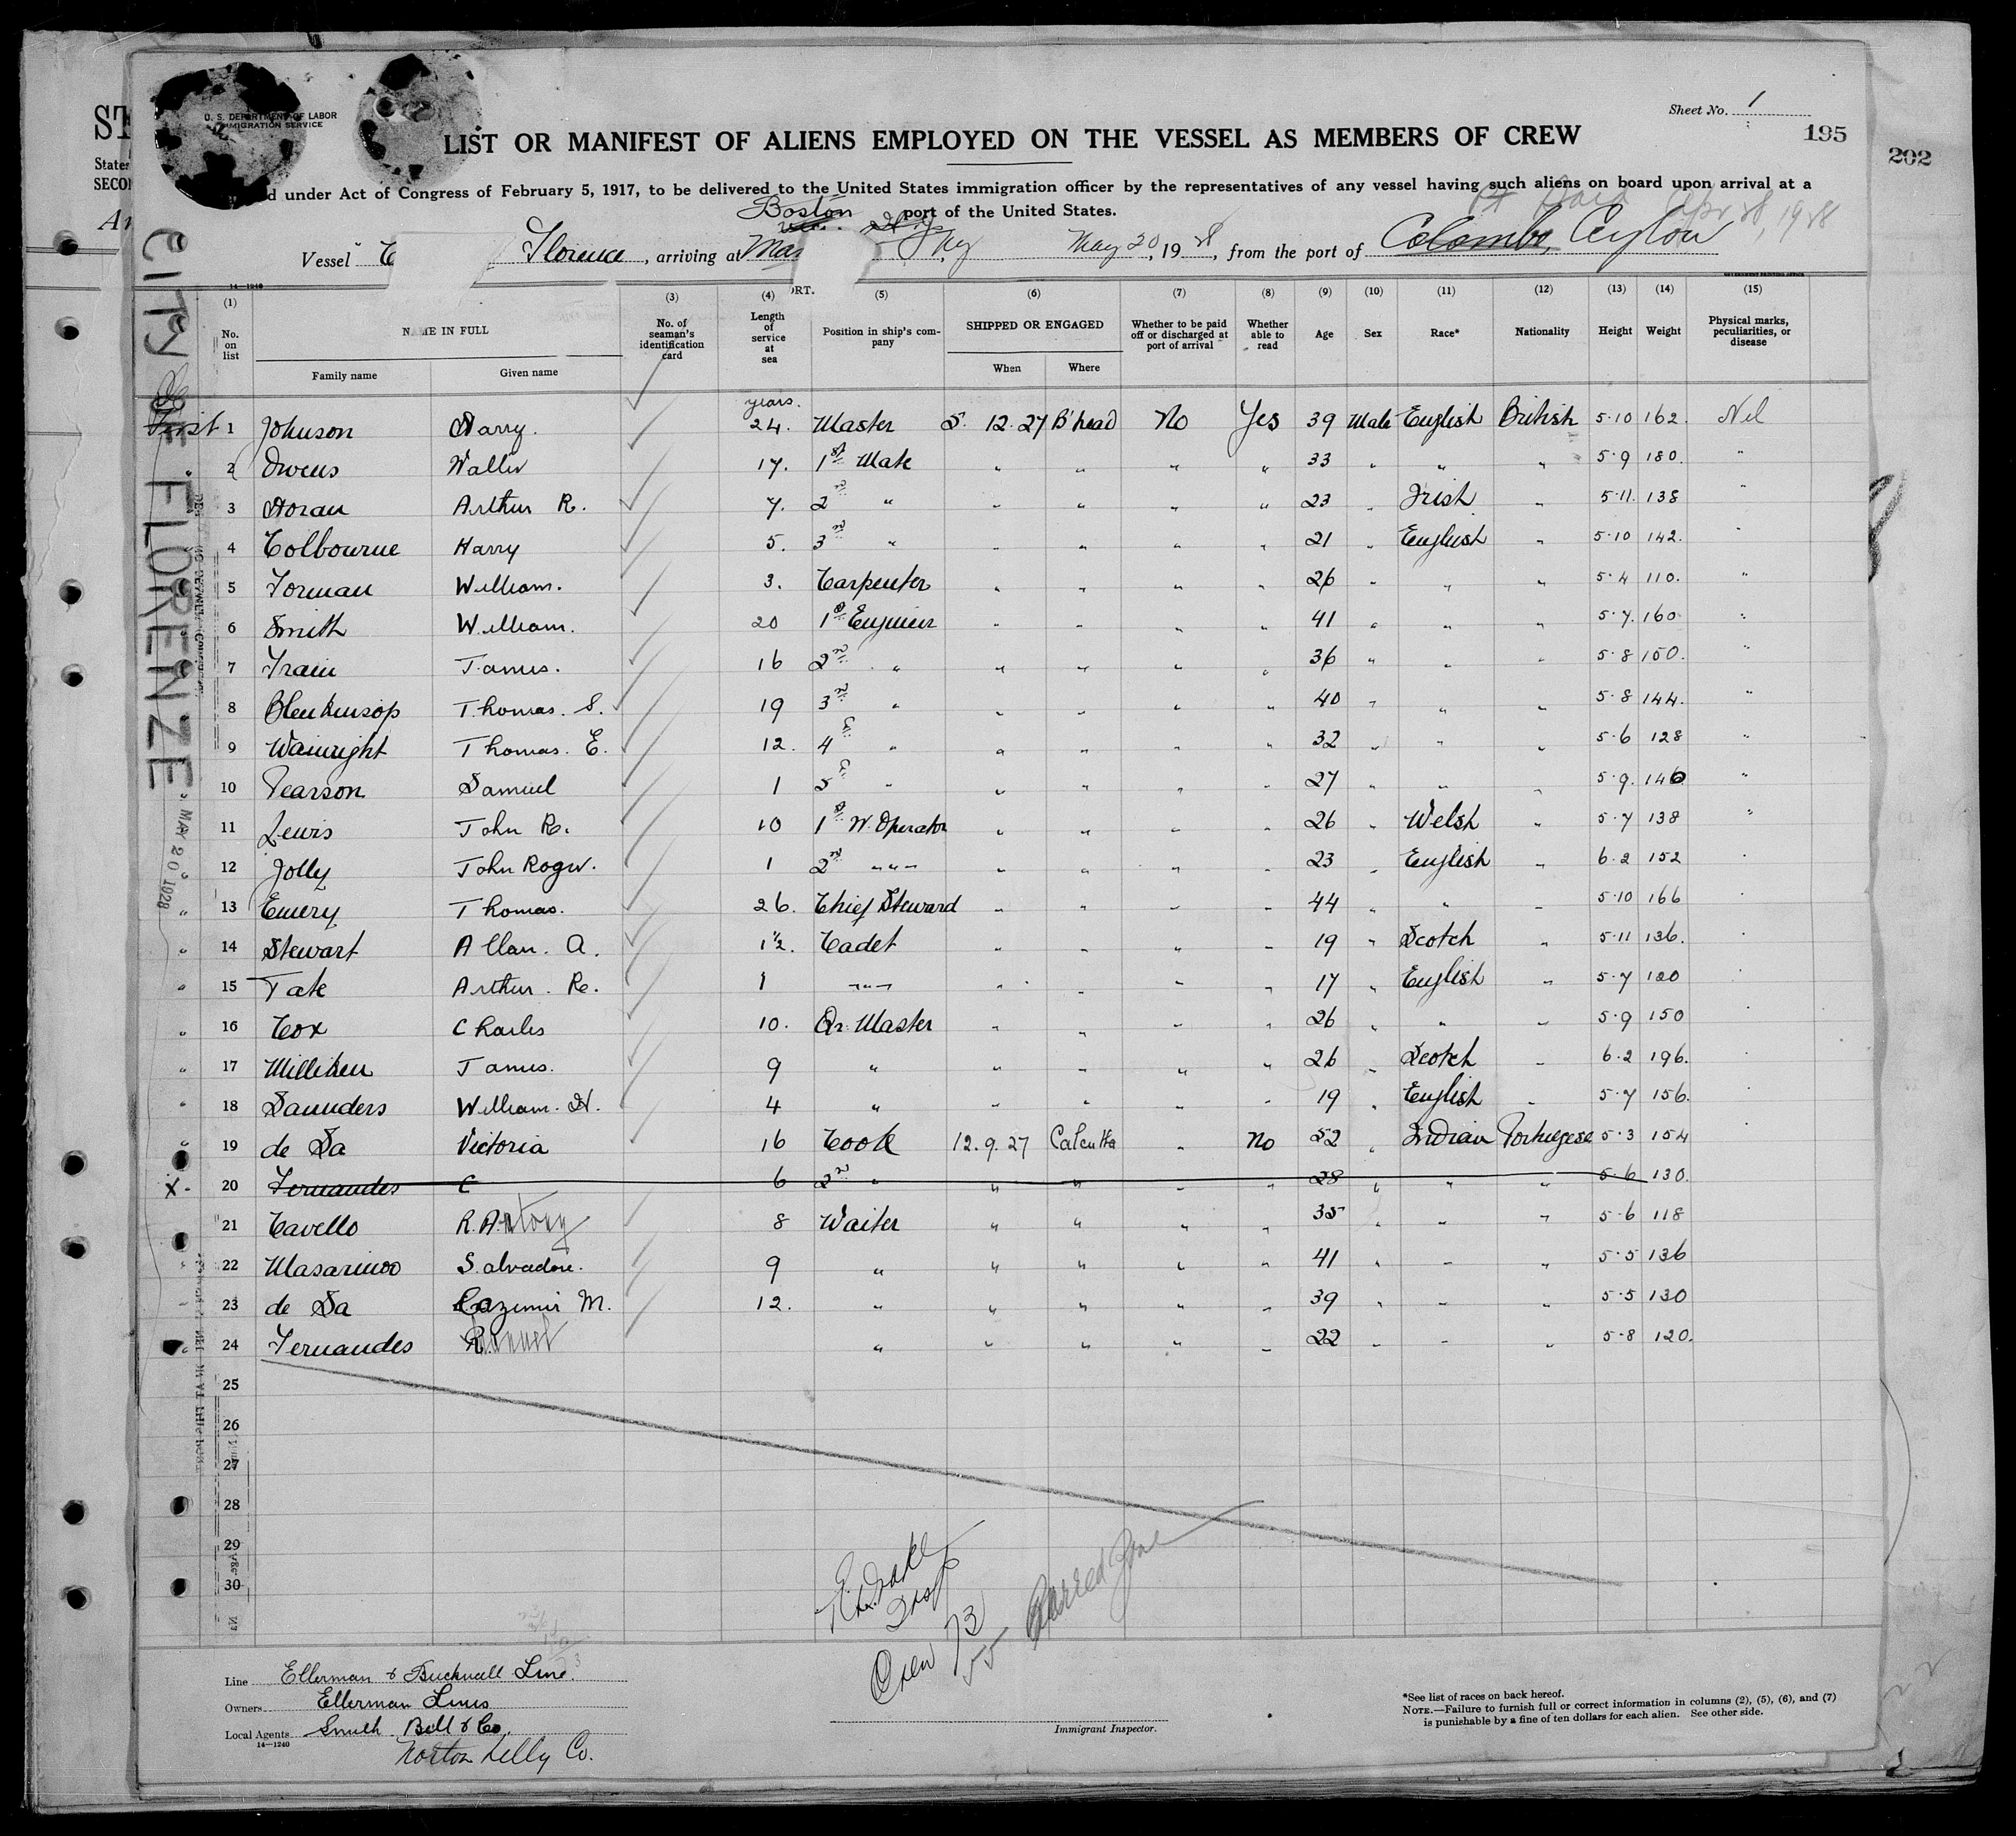 Sheet No. 1
195
202
U. S. DEPARTMENT OF LABOR
IMMIGRATION SERVICE
LIST OR MANIFEST OF ALIENS EMPLOYED ON THE VESSEL AS MEMBERS OF CREW
d under Act of Congress of February 5, 1917, to be delivered to the United States immigration officer by the representatives of any vessel having such aliens on board upon arrival at a
port of the United States.
Boston
Vessel Florence, arriving at May 20, 1928, from the port of Colombo, Ceylon
Apr 28, 1928
14—1240
(1) No. on list
NAME IN FULL
Family name Given name
(3) No. of seaman's identification card
(4) Length of service at sea
(5) Position in ship's company
(6) SHIPPED OR ENGAGED
When Where
(7) Whether to be paid off or discharged at port of arrival
(8) Whether able to read
(9) Age
(10) Sex
(11) Race*
(12) Nationality
(13) Height
(14) Weight
(15) Physical marks, peculiarities, or disease
years.
First 1 Johnson Harry. 24. Master 5. 12. 27 B'head No Yes 39 Male English British 5·10 162. Nil
2 Owens Walter 17. 1st Mate " " " " 33 " " " 5·9 180. "
3 Horan Arthur R. 7. 2nd " " " " " 23 " Irish " 5·11. 138 "
4 Colbourne Harry 5. 3rd " " " " " 21 " English " 5·10 142. "
5 Forman William. 3. Carpenter " " " " 26 " " " 5·4 110. "
6 Smith William. 20 1st Engineer " " " " 41 " " " 5·7. 160 "
7 Train James. 16 2nd " " " " " 36 " " " 5·8 150. "
8 Blenkinsop Thomas. S. 19 3rd " " " " " 40 " " " 5·8 144. "
9 Wainright Thomas. E. 12. 4th " " " " " 32 " " " 5·6 128 "
10 Pearson Samuel 1 5th " " " " " 27 " " " 5·9. 146 "
11 Lewis John R. 10 1st W. Operator " " " " 26 " Welsh " 5·7 138 "
12 Jolly John Roger. 1 2nd " " " " " " 23 " English " 6·2 152 "
13 Emery Thomas. 26. Chief Steward " " " " 44 " " " 5·10 166
14 Stewart Allan. A. 1½. Cadet " " " " 19 " Scotch " 5·11 136.
15 Tate Arthur. R. 1 " " " " " 17 " English " 5·7 120
16 Cox Charles 10. Qr. Master " " " " 26 " " " 5·9 150
17 Milliken James. 9 " " " " " 26 " Scotch " 6·2 196.
18 Saunders William. H. 4 " " " " " 19 " English " 5·7 156.
19 de Sa Victoria 16 Cook 12. 9. 27 Calcutta " No 52 " Indian Portugese 5·3 154
X 20 Fernandes C 6 2nd " " " " " 28 " " " 5·6 130.
21 Cavello R. Antony 8 Waiter " " " " 35 " " " 5·6 118
22 Masarinoo Salvadore. 9 " " " " " 41 " " " 5·5 136
23 de Sa Cazemir M. 12. " " " " " 39 " " " 5·5 130
24 Fernandes R. " " " " " 22 " " " 5·8 120.
25
26
27
28
29
30
CITY OF FLORENZE
MAY 20 1928
Crew 73
55 Barred Zone
Line Ellerman & Bucknall Line.
Owners Ellerman Lines
Local Agents Smith Bell & Co.
14—1240
Norton Lilly Co.
Immigrant Inspector.
*See list of races on back hereof.
NOTE.—Failure to furnish full or correct information in columns (2), (5), (6), and (7)
is punishable by a fine of ten dollars for each alien. See other side.